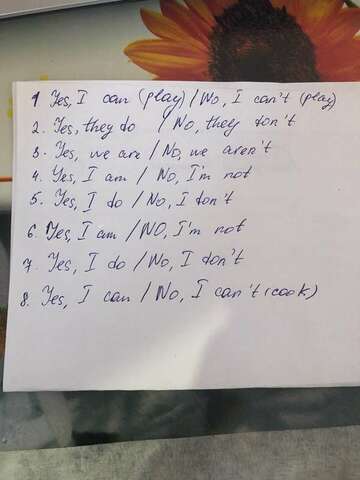 1 Yes, I can (play) / No, I can't (play)
2. Yes, they do / No, they don't
3. Yes, we are / No, we aren't
4. Yes, I am / No, I'm not
5. Yes, I do / No, I don't
6. Yes, I am / NO, I'm not
7. Yes, I do / No, I don't
8. Yes, I can / No, I can't (cook)